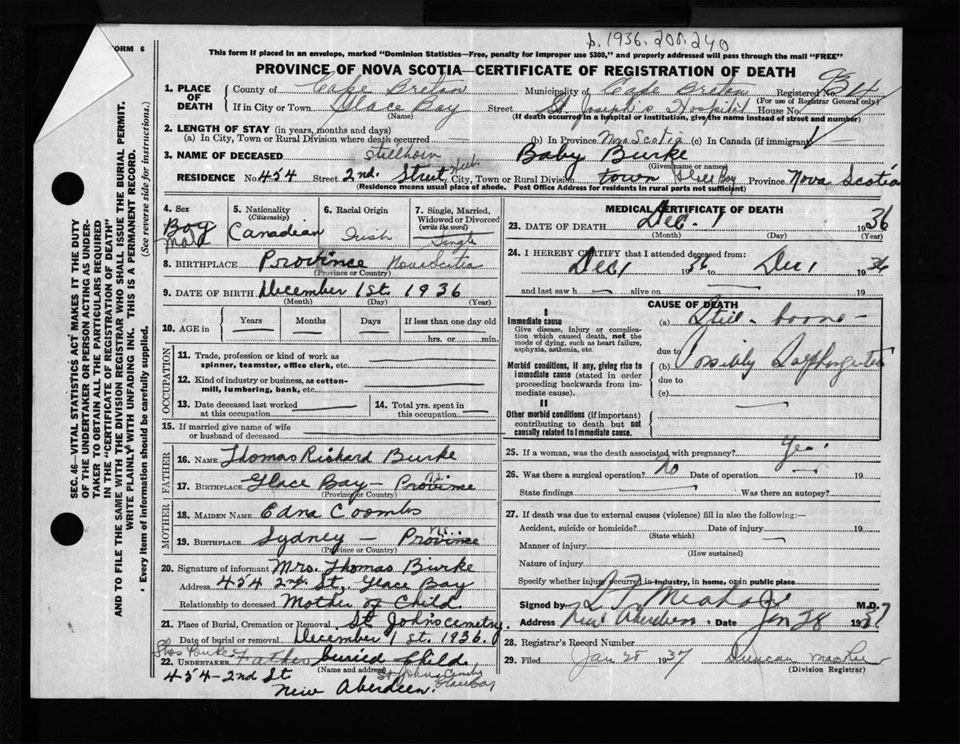 FORM 6
b. 1936. 200. 240
This form if placed in an envelope, marked "Dominion Statistics—Free, penalty for improper use $300," and properly addressed will pass through the mail "FREE"
PROVINCE OF NOVA SCOTIA—CERTIFICATE OF REGISTRATION OF DEATH
1. PLACE OF DEATH County of Cape Breton Municipality of Cape Breton Registered No.
(For use of Registrar General only)
If in City or Town Glace Bay Street St Joseph's Hospital House No.
(Name) (If death occurred in a hospital or institution, give the name instead of street and number)
2. LENGTH OF STAY (in years, months and days)
(a) In City, Town or Rural Division where death occurred (b) In Province Nova Scotia (c) In Canada (if immigrant)
3. NAME OF DECEASED Stillborn Baby Burke
(Given name or names)
RESIDENCE No. 454 Street 2nd. Street City, Town or Rural Division town Glace Bay Province Nova Scotia
(Residence means usual place of abode. Post Office Address for residents in rural parts not sufficient)
4. Sex Boy Male
5. Nationality (Citizenship) Canadian
6. Racial Origin Irish
7. Single, Married, Widowed or Divorced (write the word) Single
8. BIRTHPLACE Province Nova Scotia
(Province or Country)
9. DATE OF BIRTH December 1st. 1936
(Month) (Day) (Year)
10. AGE in Years Months Days If less than one day old
hrs. or min.
OCCUPATION
11. Trade, profession or kind of work as spinner, teamster, office clerk, etc.
12. Kind of industry or business, as cotton-mill, lumbering, bank, etc.
13. Date deceased last worked at this occupation
14. Total yrs. spent in this occupation
15. If married give name of wife or husband of deceased
FATHER
16. NAME Thomas Richard Burke
17. BIRTHPLACE Glace Bay - N.S. Province
(Province or Country)
MOTHER
18. MAIDEN NAME Edna Coombs
19. BIRTHPLACE Sydney - N.S. Province
(Province or Country)
20. Signature of informant Mrs. Thomas Burke
Address 454 2nd St, Glace Bay
Relationship to deceased Mother of Child.
21. Place of Burial, Cremation or Removal St John's cemetry
Date of burial or removal December 1st. 1936.
22. UNDERTAKER Father buried Child
(Name and address)
Thos Burke
454-2nd St
New Aberdeen.
Glace Bay
MEDICAL CERTIFICATE OF DEATH
23. DATE OF DEATH Dec. 1 1936
(Month) (Day) (Year)
24. I HEREBY CERTIFY that I attended deceased from:
Dec 1 1936 to Dec 1 1936
and last saw h alive on 19
CAUSE OF DEATH
I
Immediate cause
Give disease, injury or complication which caused death, not the mode of dying, such as heart failure, asphyxia, asthenia, etc.
(a) Still-borne-
due to
Morbid conditions, if any, giving rise to immediate cause (stated in order proceeding backwards from immediate cause).
(b)
due to
(c)
II
Other morbid conditions (if important) contributing to death but not causally related to immediate cause.
25. If a woman, was the death associated with pregnancy?
26. Was there a surgical operation? No Date of operation 19
State findings Was there an autopsy?
27. If death was due to external causes (violence) fill in also the following:—
Accident, suicide or homicide? Date of injury 19
(State which)
Manner of injury
(How sustained)
Nature of injury
Specify whether injury occurred in industry, in home, or in public place
Signed by M.D.
Address New Aberdeen Date Jan 28 1937
28. Registrar's Record Number
29. Filed Jan 28 1937 Duncan
(Division Registrar)
SEC. 46—VITAL STATISTICS ACT MAKES IT THE DUTY
OF THE UNDERTAKER OR PERSON ACTING AS UNDERTAKER TO OBTAIN ALL THE PARTICULARS REQUIRED
IN THE "CERTIFICATE OF REGISTRATION OF DEATH"
AND TO FILE THE SAME WITH THE DIVISION REGISTRAR WHO SHALL ISSUE THE BURIAL PERMIT.
WRITE PLAINLY WITH UNFADING INK. THIS IS A PERMANENT RECORD.
Every item of information should be carefully supplied. (See reverse side for instructions.)